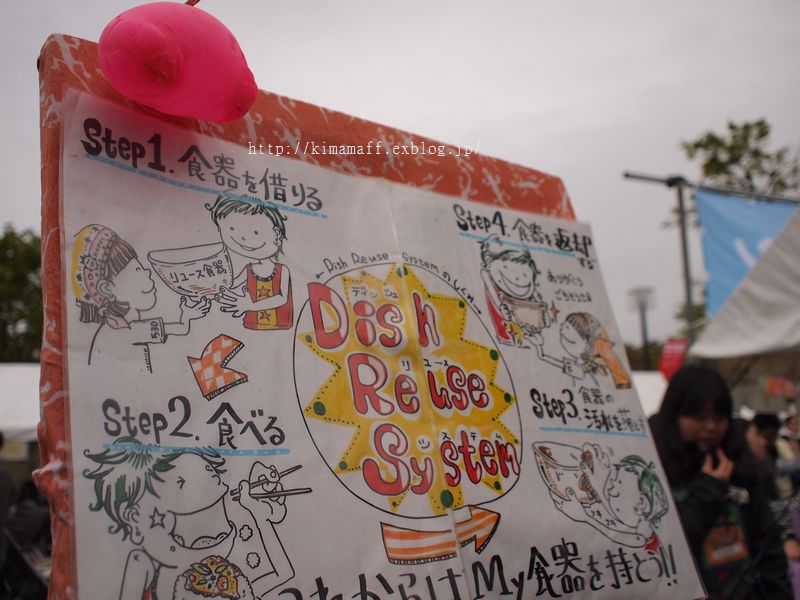 http://kimamaff.exblog.jp/
Step1. 食器を借りる
リユース食器
530
Step2. 食べる
← Dish Reuse Systemのしくみ→
Dish
ディッシュ
Reuse
リユース
System
システム
Step3. 食器の
汚れを落とす
Step4. 食器を返却
する
ありがとう
ごちそうさま
これからはMy食器を持とう!!